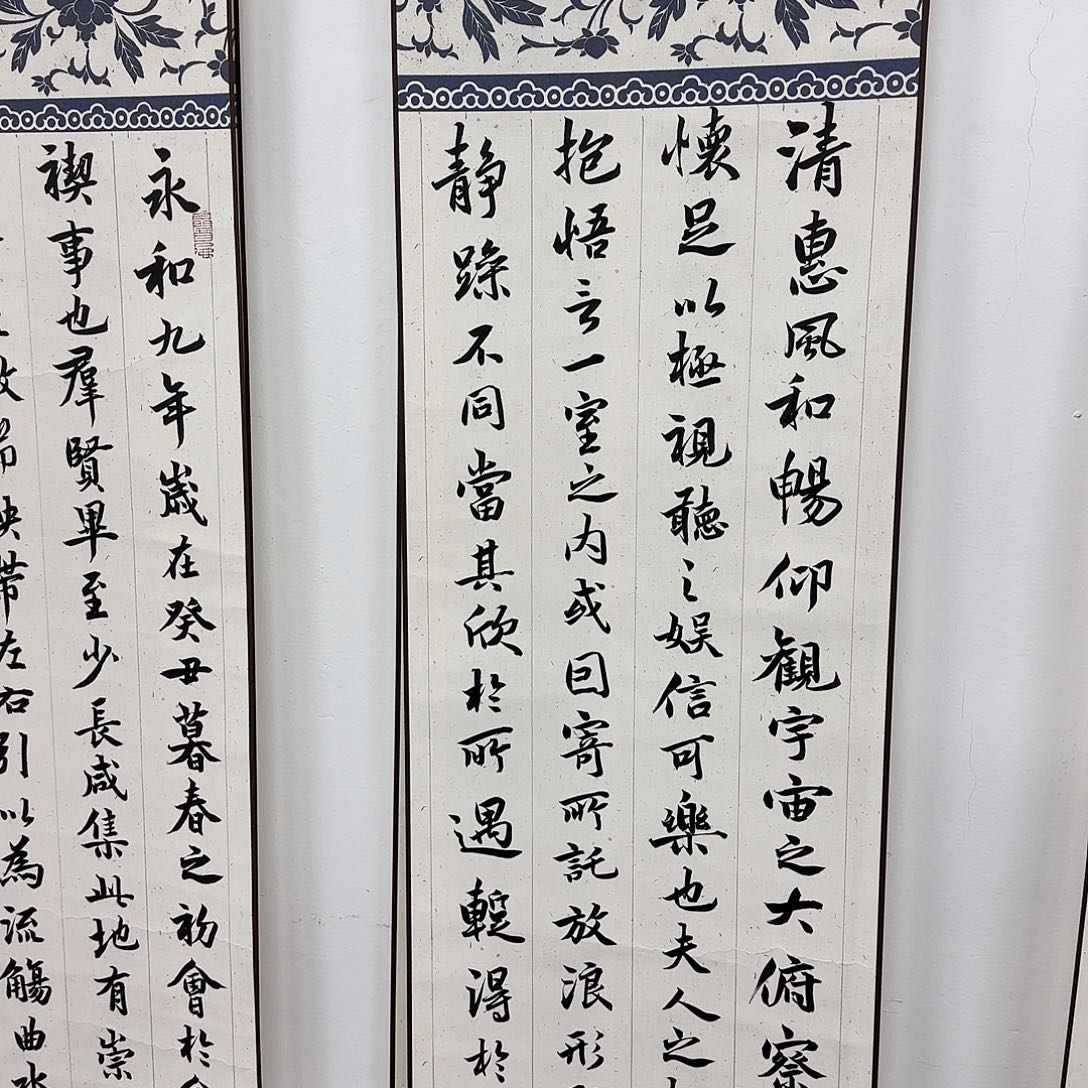 永和九年歲在癸丑暮春之初會於
禊事也羣賢畢至少長咸集此地有崇
映帶左右引以為流觴曲水
清惠風和暢仰觀宇宙之大俯察
懷足以極視聽之娱信可樂也夫人之
抱悟言一室之内或因寄所託放浪形
静躁不同當其欣於所遇暫得於